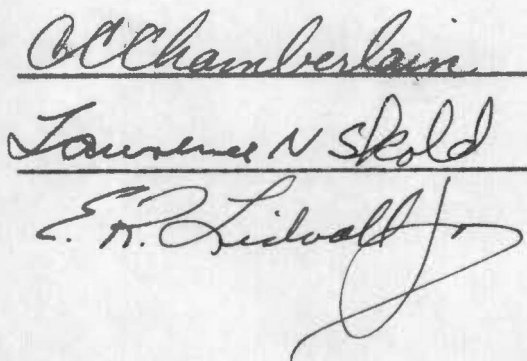 C C Chamberlain
Lawrence N Skold
E. R. Lidvall Jr